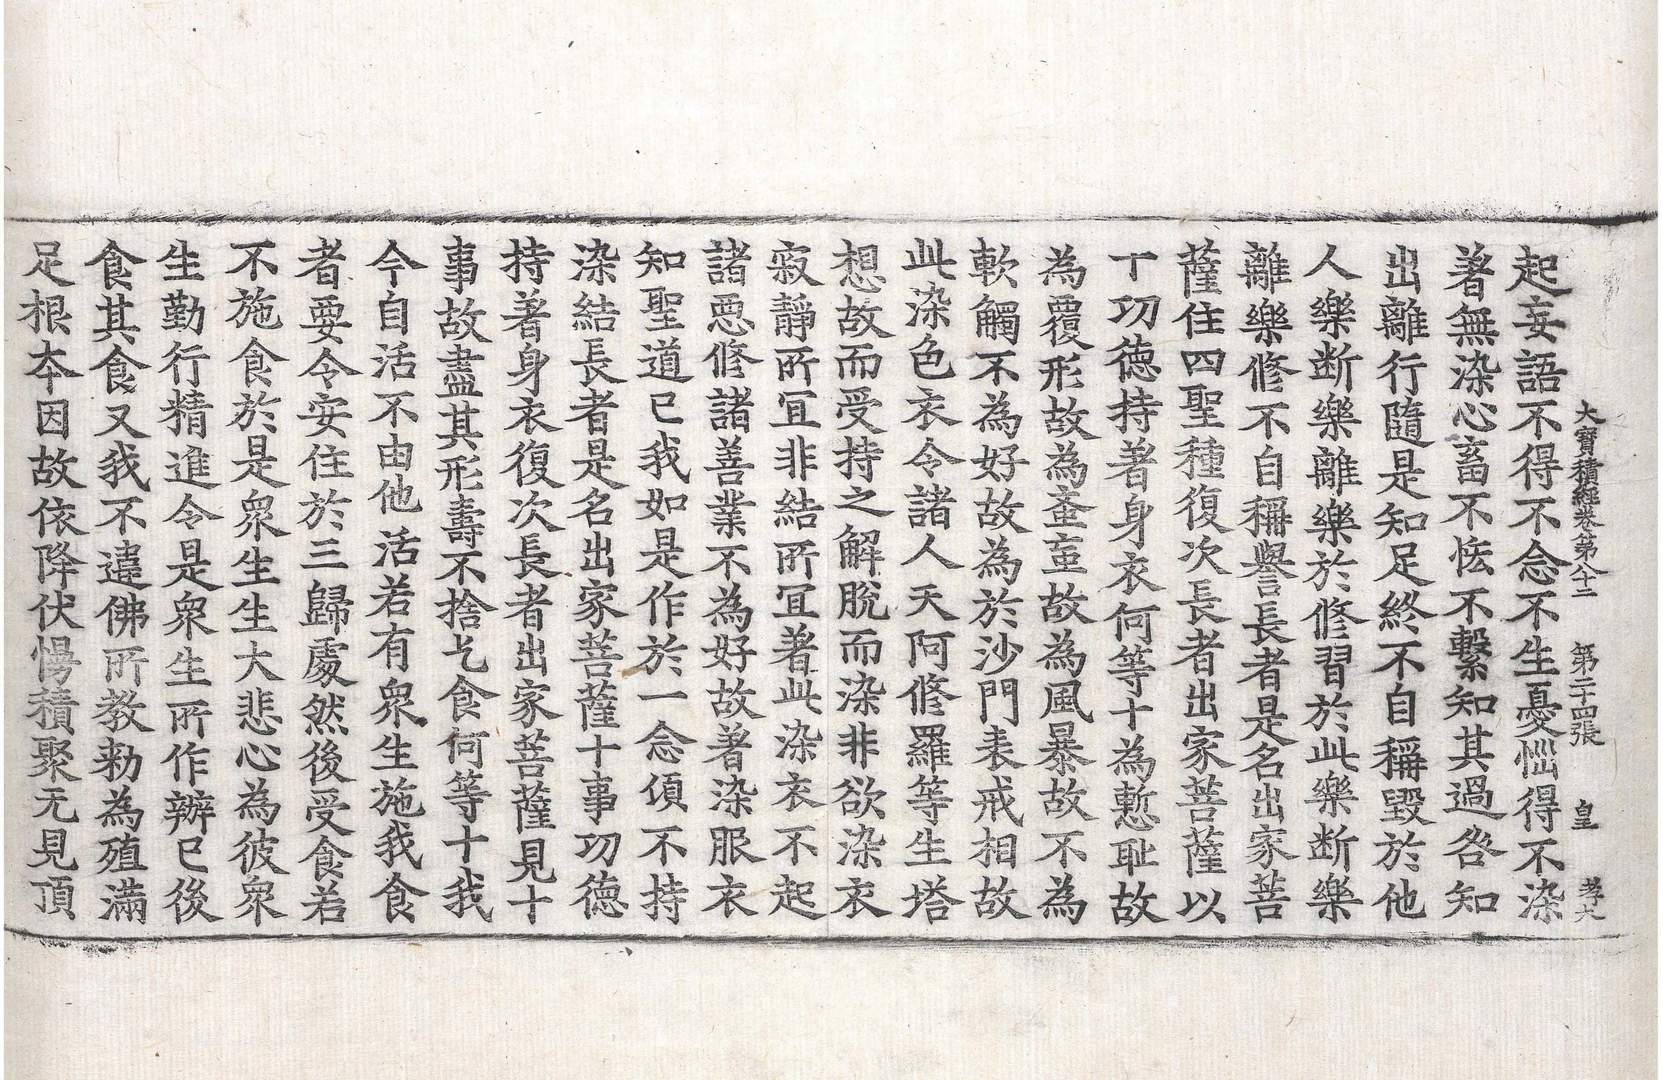 大寶積經卷第八十二　第二十四張　皇
起妄語不得不念不生憂惱得不染
著無染心畜不悋不繫知其過咎知
出離行隨是知足終不自稱毀於他
人樂断樂離樂於修習於此樂断樂
離樂修不自稱譽長者是名出家菩
薩住四聖種復次長者出家菩薩以
十功德持著身衣何等十為慙耻故
為覆形故為蚉䖟故為風暴故不為
軟觸不為好故為於沙門表戒相故
此染色衣令諸人天阿修羅等生塔
想故而受持之解脫而染非欲染衣
寂靜所冝非結所冝著此染衣不起
諸惡修諸善業不為好故著染服衣
知聖道已我如是作於一念傾不持
染結長者是名出家菩薩十事功德
持著身衣復次長者出家菩薩見十
事故盡其形壽不捨乞食何等十我
今自活不由他活若有衆生施我食
者要令安住於三歸處然後受食若
不施食於是衆生生大悲心為彼衆
生勤行精進令是衆生所作辦已後
食其食又我不違佛所教勑為殖滿
足根本因故依降伏慢積聚无見頂